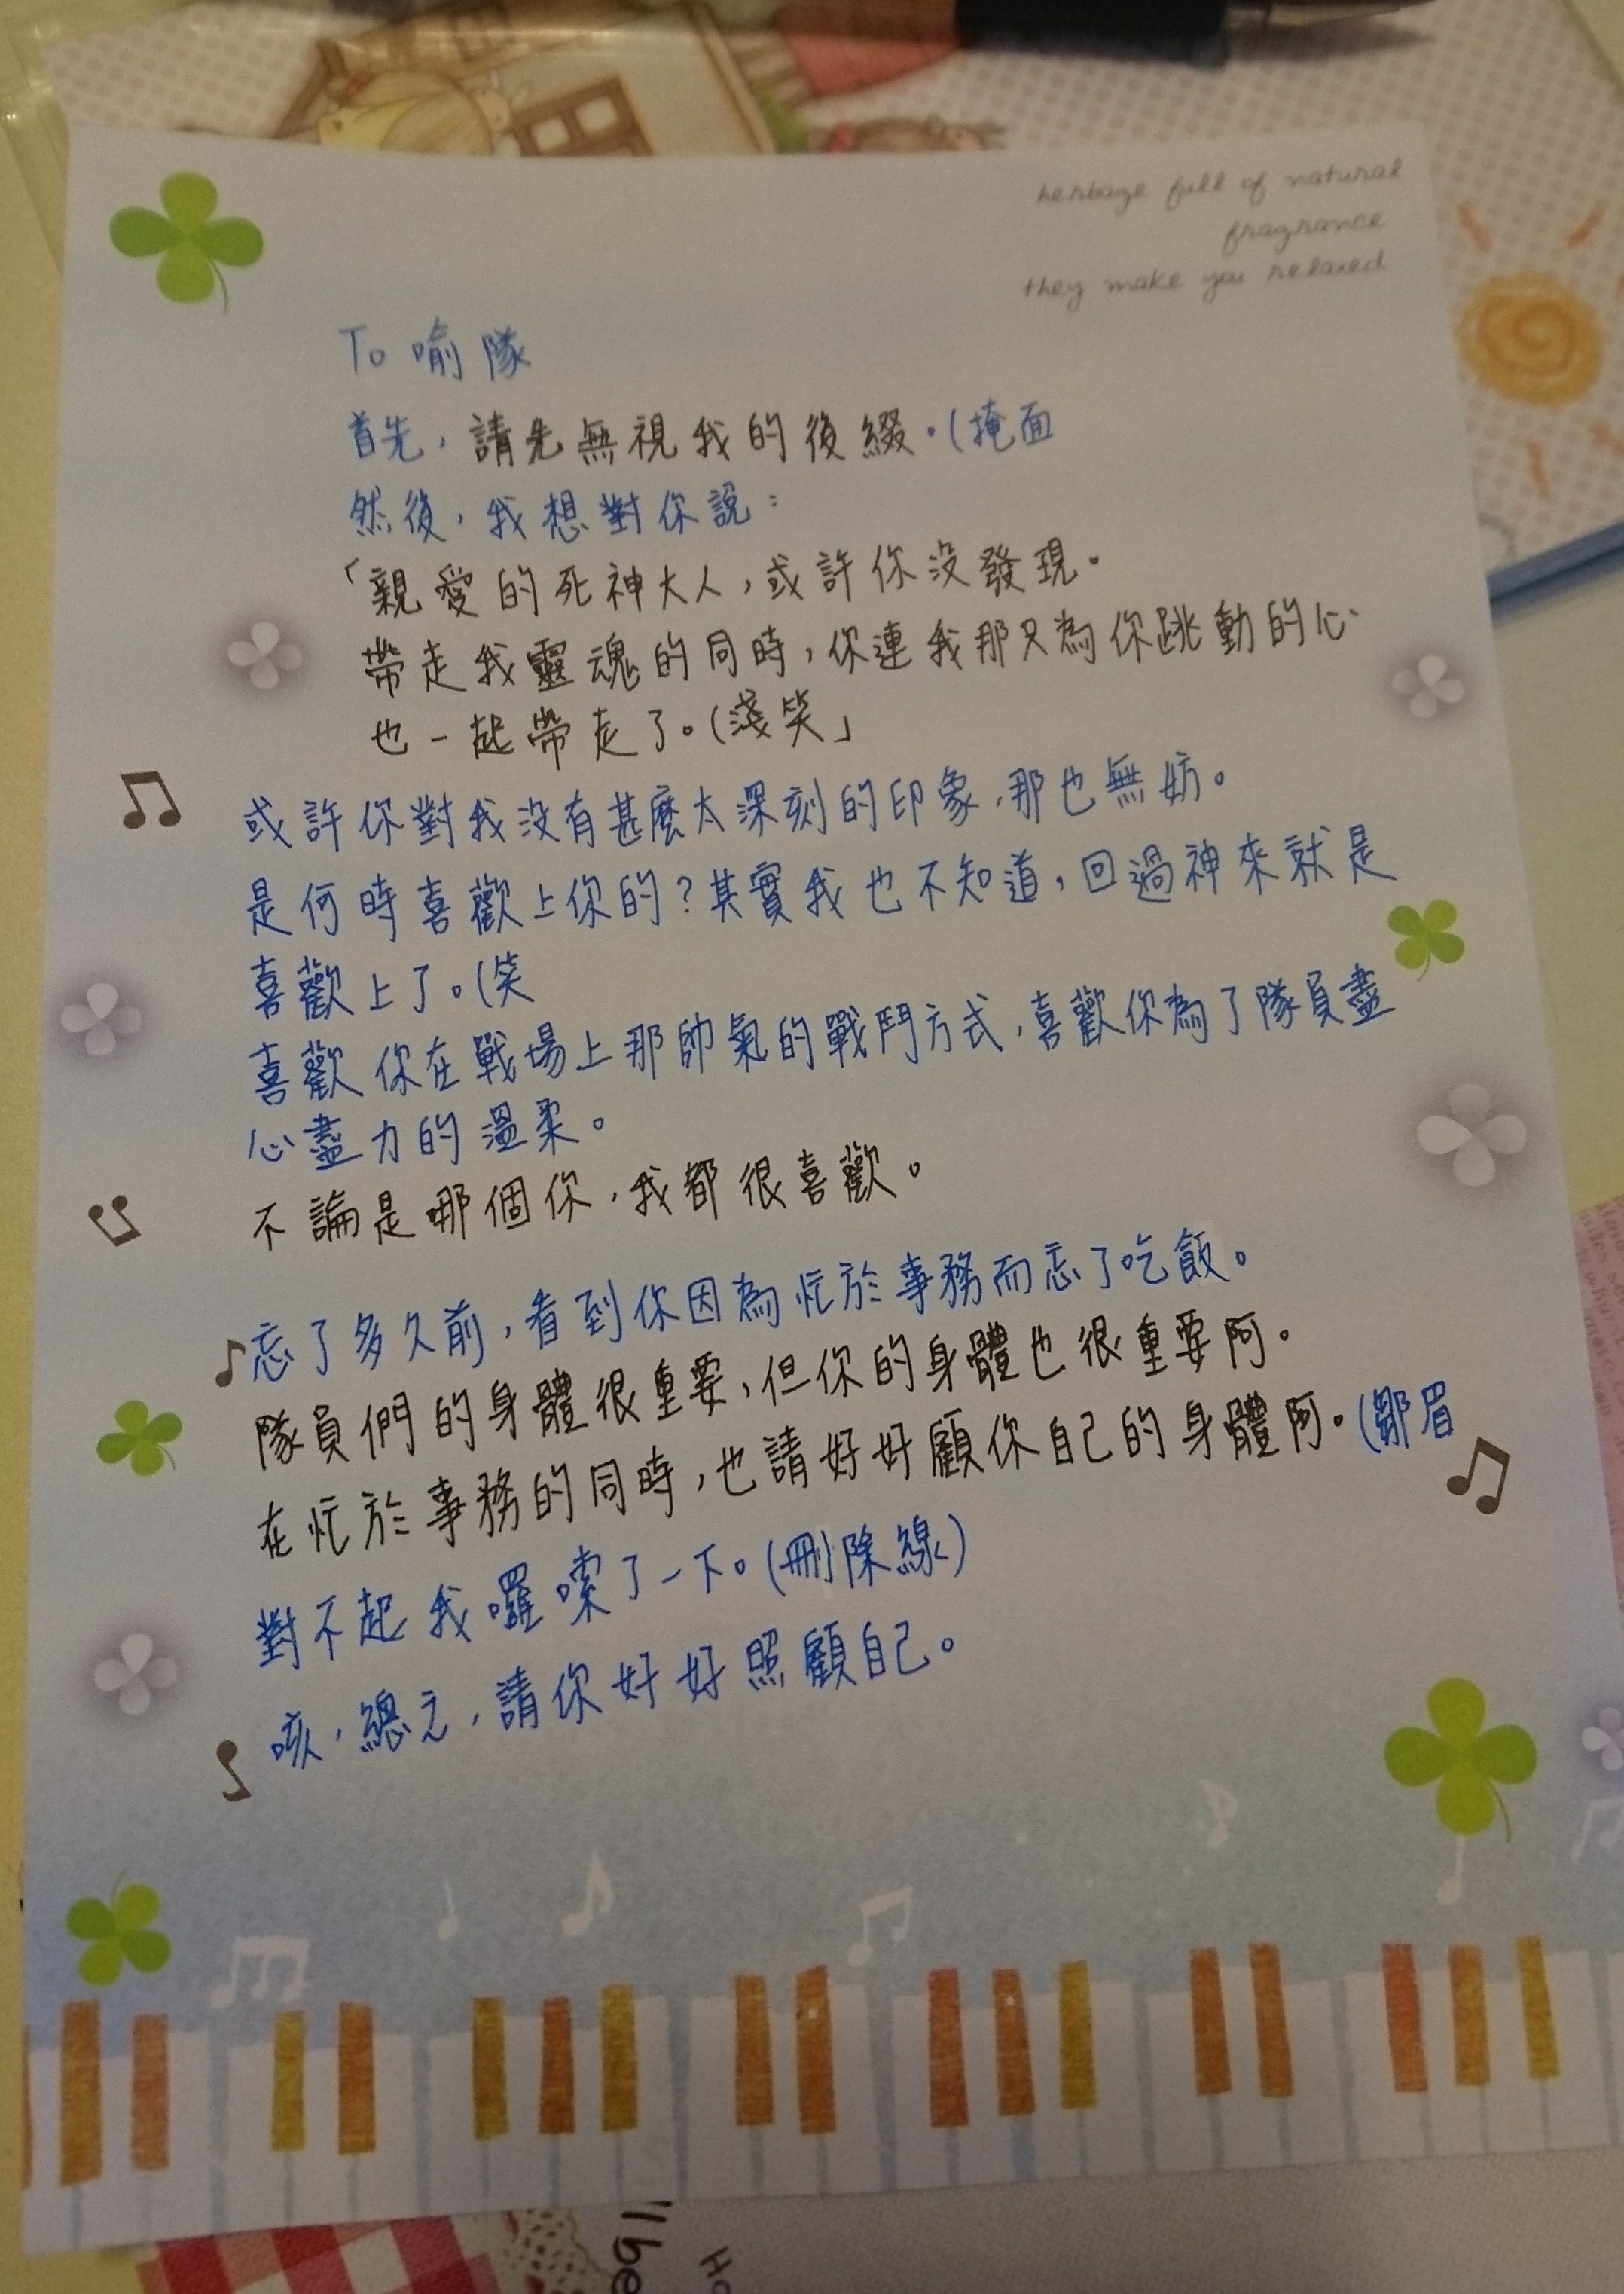 herbage full of natural
fragrance
they make you relaxed
To 喻隊
首先,請先無視我的後綴。(掩面
然後,我想對你說:
「親愛的死神大人,或許你没發現。
帶走我靈魂的同時,你連我那只為你跳動的心
也一起帶走了。(淺笑」
或許你對我没有甚麼太深刻的印象,那也無妨。
是何時喜歡上你的?其實我也不知道,回過神來就是
喜歡上了。(笑
喜歡你在戰場上那帥氣的戰鬥方式,喜歡你為了隊員盡
心盡力的溫柔。
不論是哪個你,我都很喜歡。
忘了多久前,看到你因為忙於事務而忘了吃飯。
隊員們的身體很重要,但你的身體也很重要阿。
在忙於事務的同時,也請好好顧你自己的身體阿。(鄒眉
對不起我囉嗦了一下。(刪除線)
咳,總之,請你好好照顧自己。